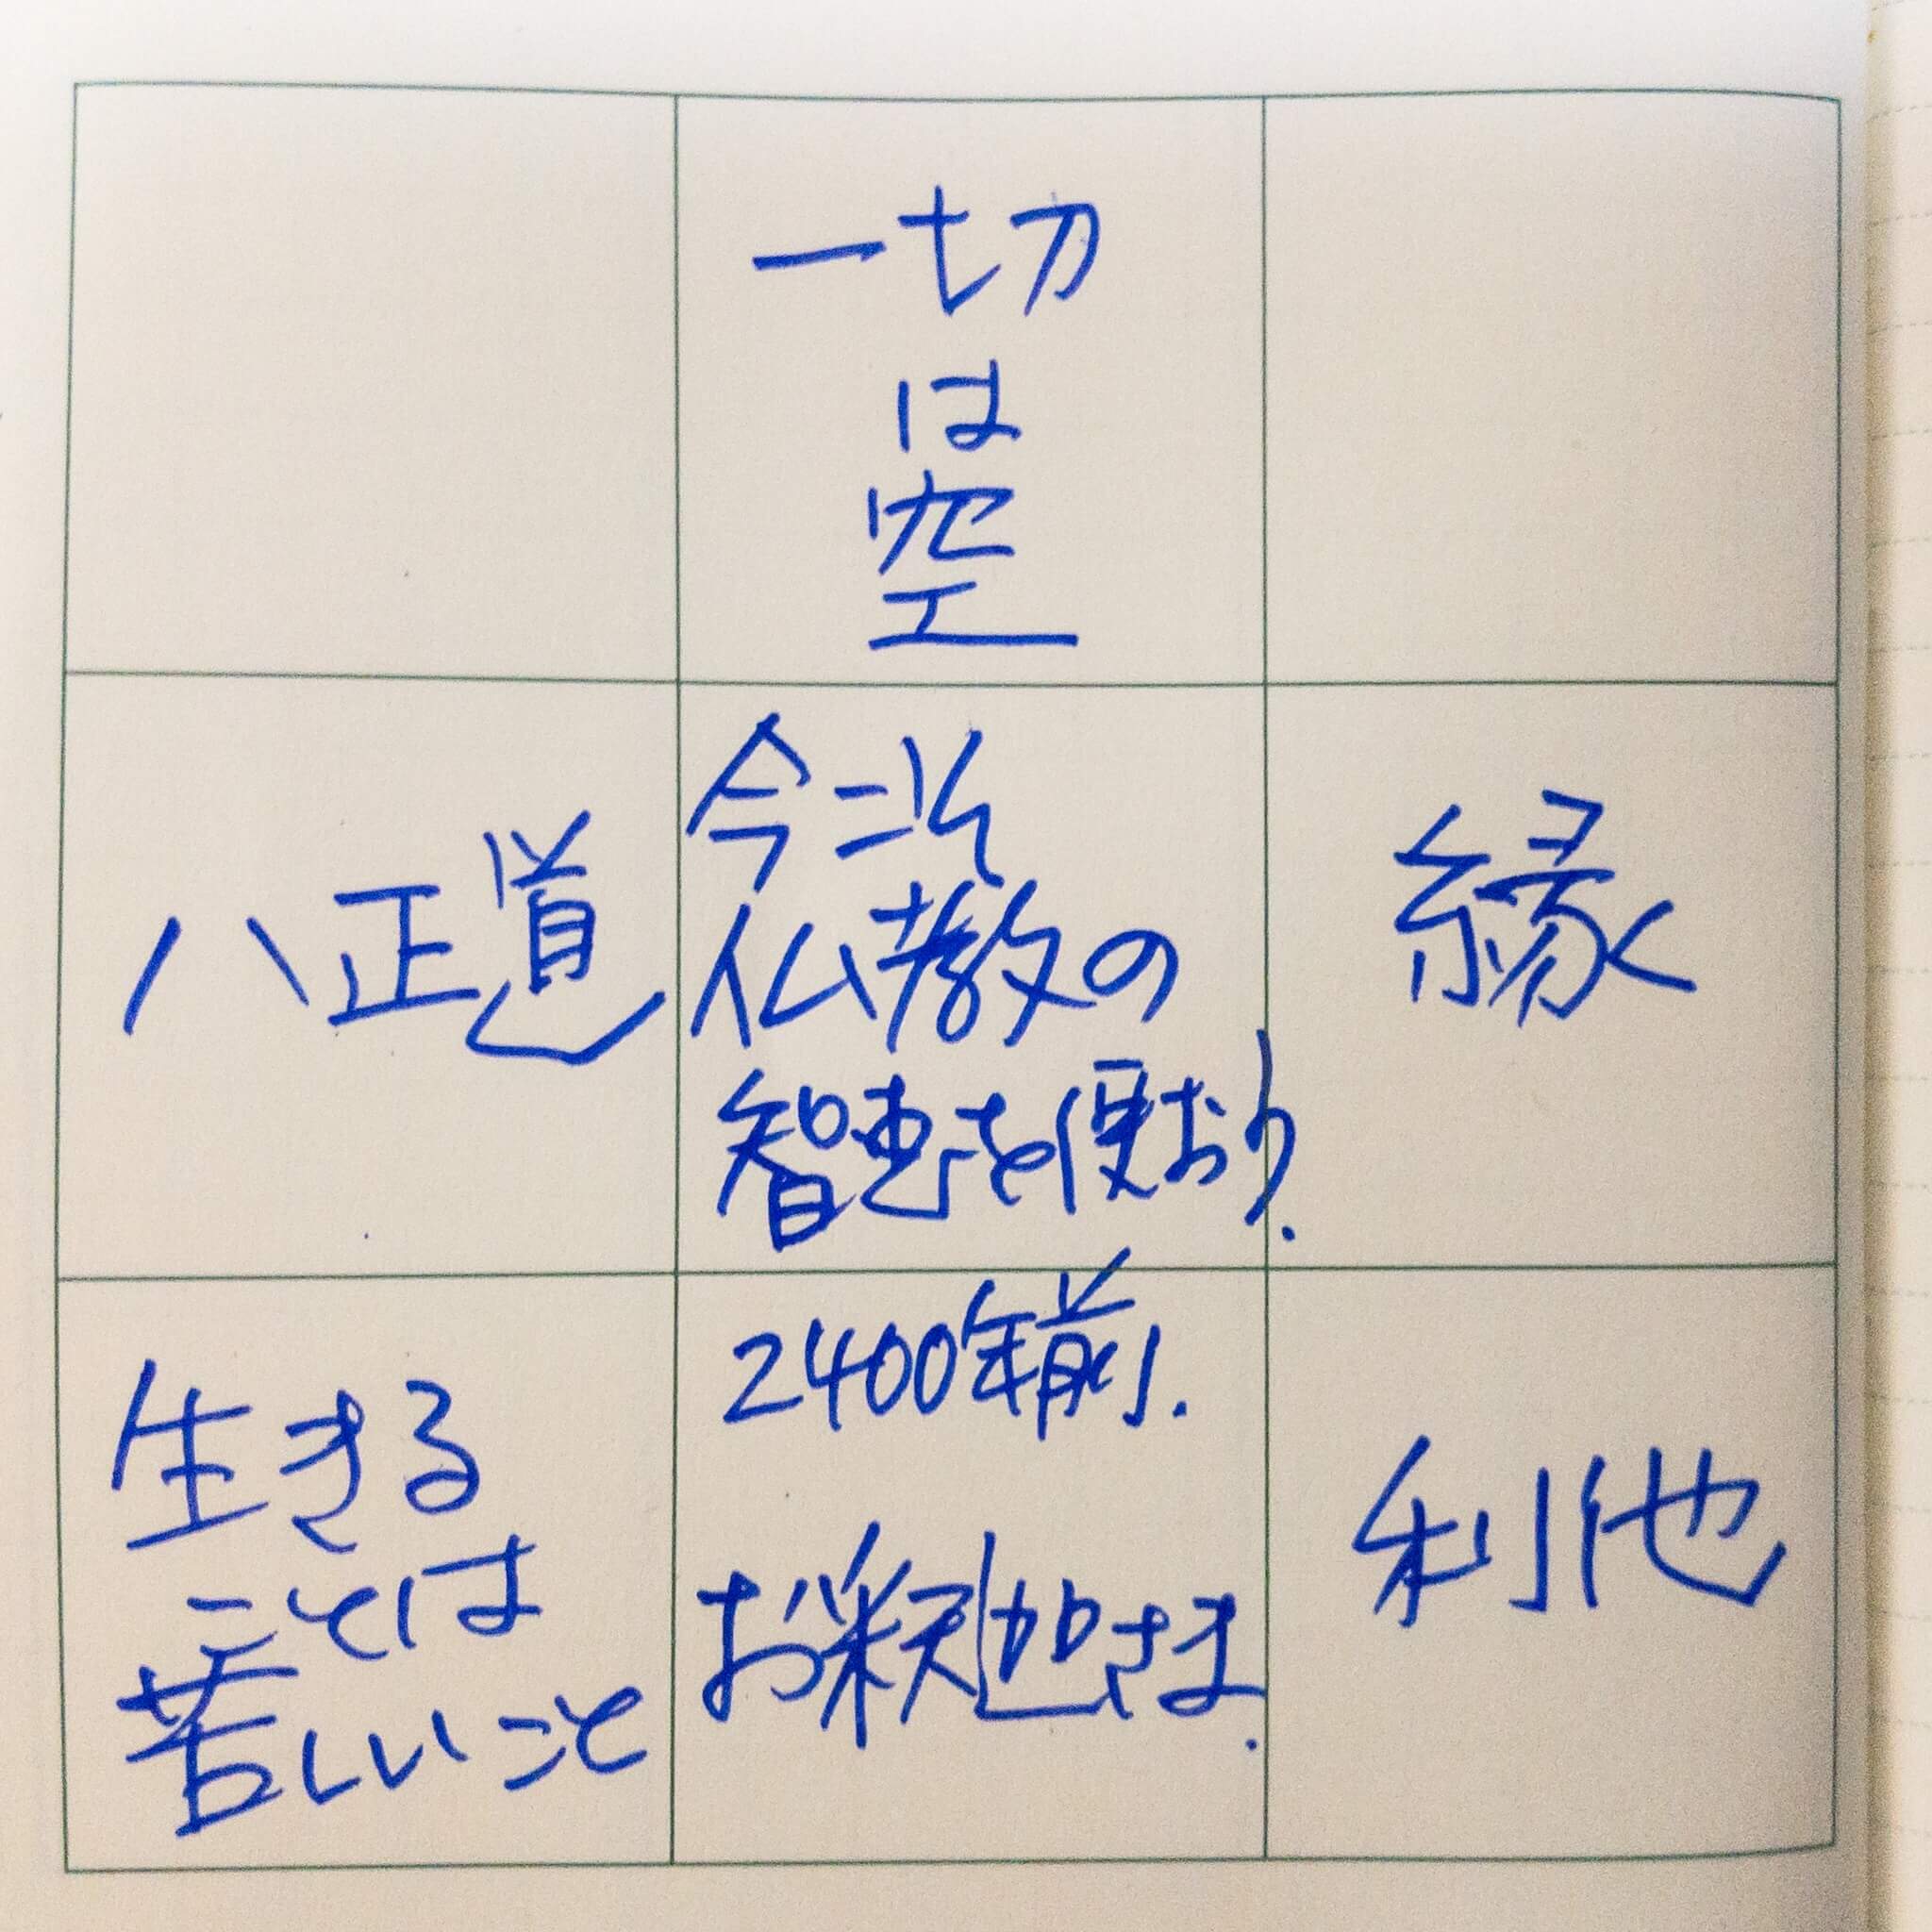 一切
は
空
八正道
今こそ
仏教の
智恵を使おう.
縁
生きる
ことは
苦しいこと
2400年前.
お釈迦さま.
利他